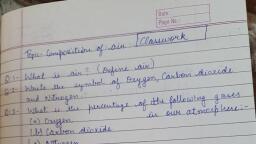 Date
Page No.
Topic Composition of air Classwork
Q.1- What is air? (Define air)
Q.2- Write the symbol of Oxygen, Carbon dioxide
and Nitrogen.
Q.3- What is the percentage of the following gases
(a) Oxygen in our atmosphere:-
(b) Carbon dioxide
(c) Nitrogen